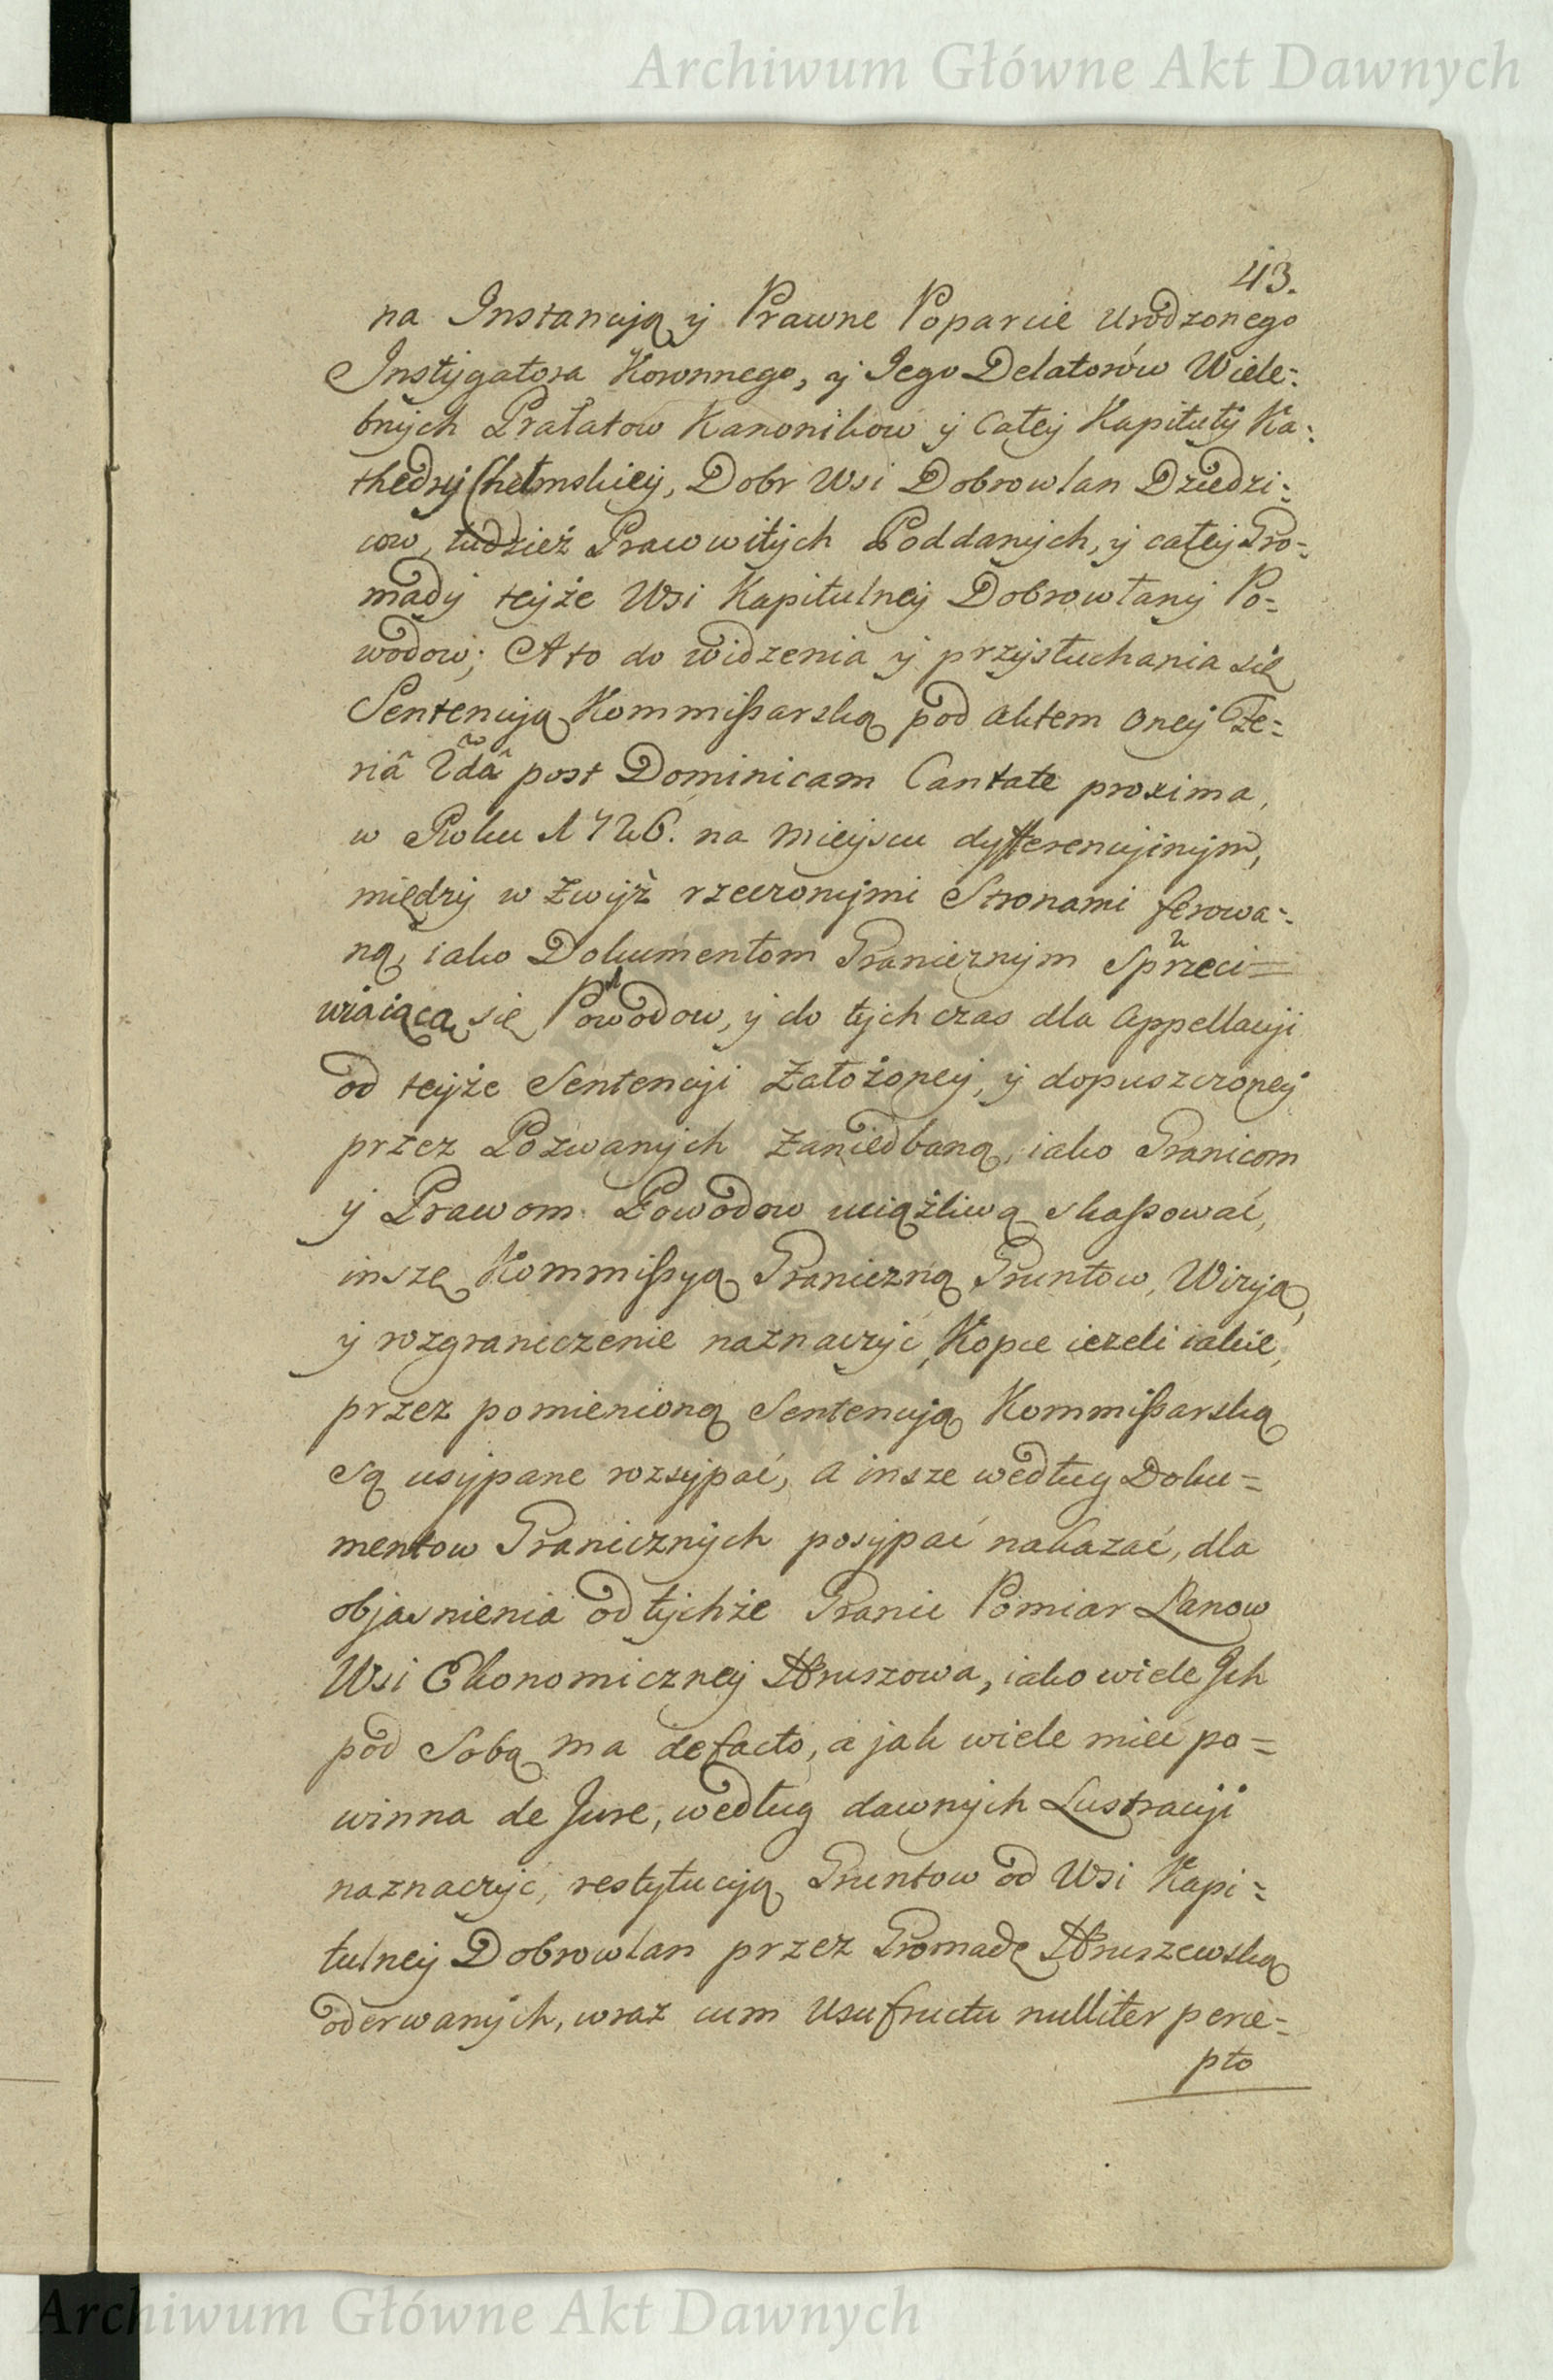 Archiwum Główne Akt Dawnych
43.
na Instancyją y Prawne Poparcie Urodzonego
Instygatora Koronnego, y Jego Delatorów Wiele=
bnych Prałatow Kanonikow y Całey Kapituły Ka=
thedry Chełmskiey, Dobr Wsi Dobrowlan Dziedzi=
cow, tudzież Prawowitych Poddanych, y całey Gro=
mady teyże Wsi Kapitulney Dobrowlany Po=
wodow; A to do widzenia y przysłuchania się
Sentencyją Kommissarską pod aktem oney Fe=
riâ 2dâ post Dominicam Cantate proxima,
w Roku 1726. na mieyscu dyfferencyinym,
między w zwyż rzeczonymi Stronami ferowa=
ną, iako Dokumentom Granicznym Sprzeci=
wiaiącą się Powodow, y do tych czas dla Appellacyi
od teyże Sentencyi Założoney, y dopuszczoney
przez Pozwanych zaniedbaną, iako Granicom
y Prawom Powodow uciążliwą skassować,
inszę Kommissyą Graniczną Gruntow, Wizyą,
y rozgraniczenie naznaczyć, Kopce ieżeli iakie,
przez pomienioną Sentencyją Kommissarską
są usypane rozsypać, a insze według Doku=
mentow Granicznych posypać nakazać, dla
objasnienia od tychże Granic Pomiar Łanow
Wsi Ekonomiczney Hruszowa, iako wiele Ich
pod Sobą ma de facto, a jak wiele mieć po=
winna de Jure, według dawnych Lustracyi
naznaczyć, restytucyją Gruntow od Wsi Kapi=
tulney Dobrowlan przez Gromadę Hruszewską
oderwanych, wraz cum Usufructu nulliter perce=
pto
Archiwum Główne Akt Dawnych